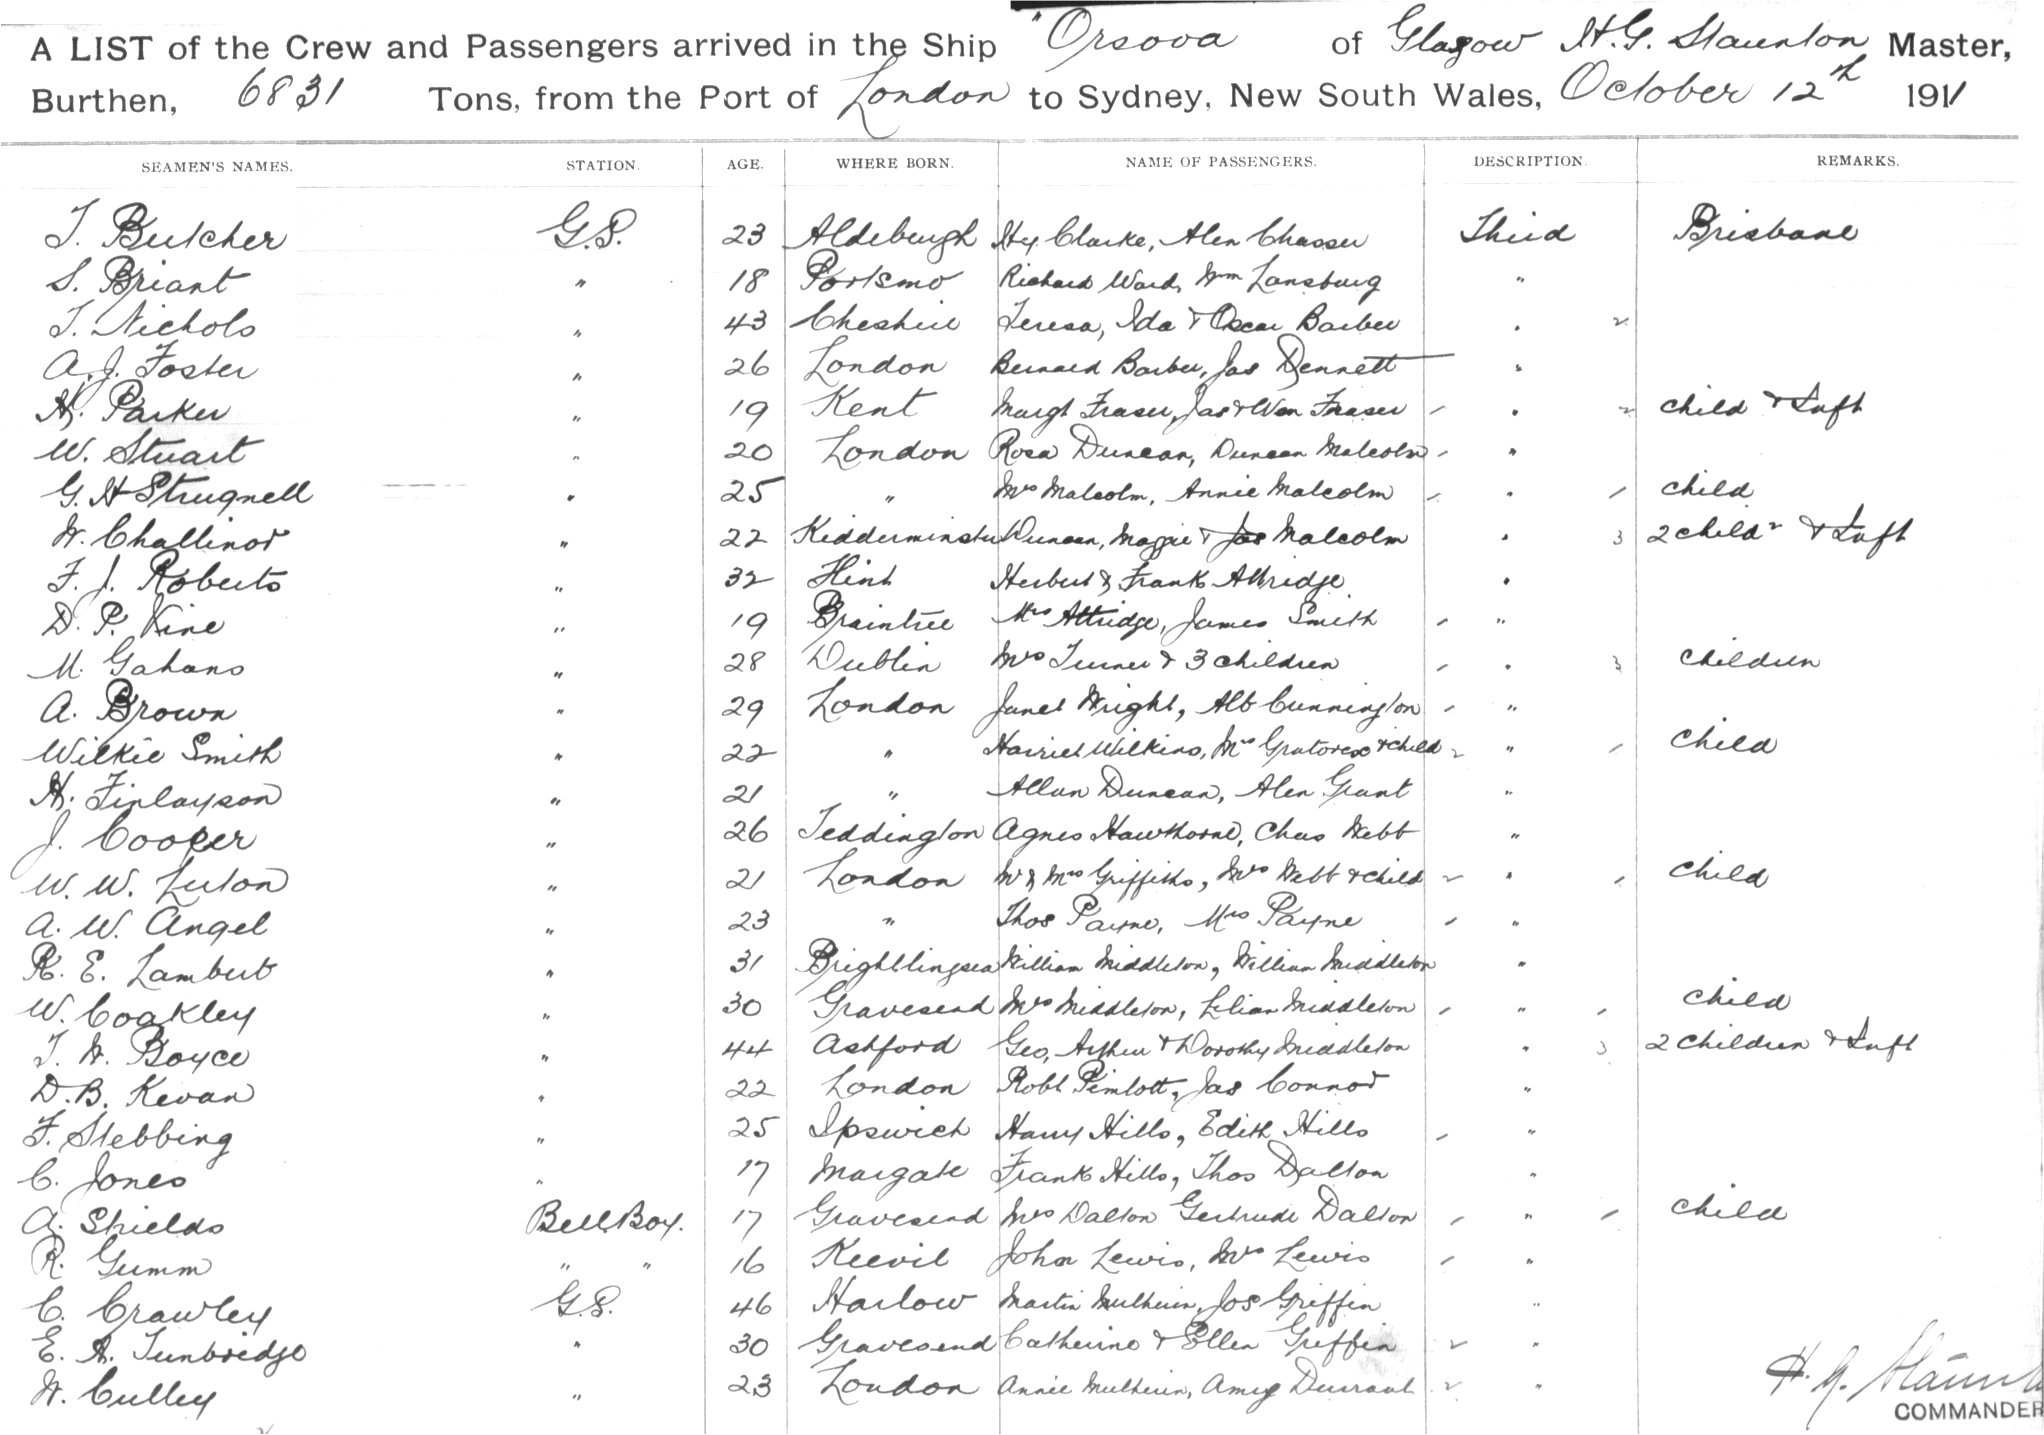 A LIST of the Crew and Passengers arrived in the Ship "Orsova of Glasgow H.G. Staunton Master,
Burthen, 6831 Tons, from the Port of London to Sydney, New South Wales, October 12th 1911
SEAMEN'S NAMES. STATION. AGE. WHERE BORN. NAME OF PASSENGERS. DESCRIPTION. REMARKS.
T. Butcher G.S. 23 Aldeburgh Hy Clarke, Alex Chasser Third Brisbane
S. Briant " 18 Portsmo Richard Ward, Wm Lansburg "
T. Nichols " 43 Cheshire Teresa, Ida & Oscar Barber " 2
A. J. Foster " 26 London Bernard Barber, Jas Dennett "
H. Parker " 19 Kent Margt Fraser, Jas & Wm Fraser / " 2 child & Inft
W. Stuart " 20 London Rosa Duncan, Duncan Malcolm / "
G. H Strugnell " 25 " Mrs Malcolm, Annie Malcolm / " / child
W. Challinor " 22 Kidderminster Duncan, Maggie & Jas Malcolm " 3 2 child & Inft
F. J. Roberts " 32 Flint Herbert & Frank Attridge "
D. P. Vine " 19 Braintree Mrs Attridge, James Smith / "
M. Gahans " 28 Dublin Mrs Turner & 3 children / " 3 children
A. Brown " 29 London Janet Wright, Alb Cunnington / "
Wilkie Smith " 22 " Harriet Wilkins, Mrs Gratorex & child 2 " / child
H. Finlayson " 21 " Allan Duncan, Alex Grant "
J. Cooper " 26 Teddington Agnes Hawthorne, Chas Webb "
W. W. Luton " 21 London Mr & Mrs Griffiths, Mrs Webb & child 2 " / child
A. W. Angel " 23 " Thos Payne, Mrs Payne / "
R. E. Lambert " 31 Brightlingsea William Middleton, William Middleton "
W. Coakley " 30 Gravesend Mrs Middleton, Lilian Middleton / " / child
T. W. Boyce " 44 Ashford Geo, Arthur & Dorothy Middleton " 3 2 children & Inft
D. B. Kevan " 22 London Robt Pimlott, Jas Connor "
F. Stebbing " 25 Ipswich Harry Hills, Edith Hills / "
C. Jones " 17 Margate Frank Hills, Thos Dalton "
A. Shields Bell Boy. 17 Gravesend Mrs Dalton Gertrude Dalton / " / child
R. Gumm " " 16 Keevil John Lewis, Mrs Lewis / "
C. Crawley G.S. 46 Harlow Martin Mulheirn, Jos Griffin "
E. A. Tunbridge " 30 Gravesend Catherine & Ellen Griffin 2 "
W. Culley " 23 London Annie Mulheirn, Amy Durrant 2 "
H. G. Staunton
COMMANDER